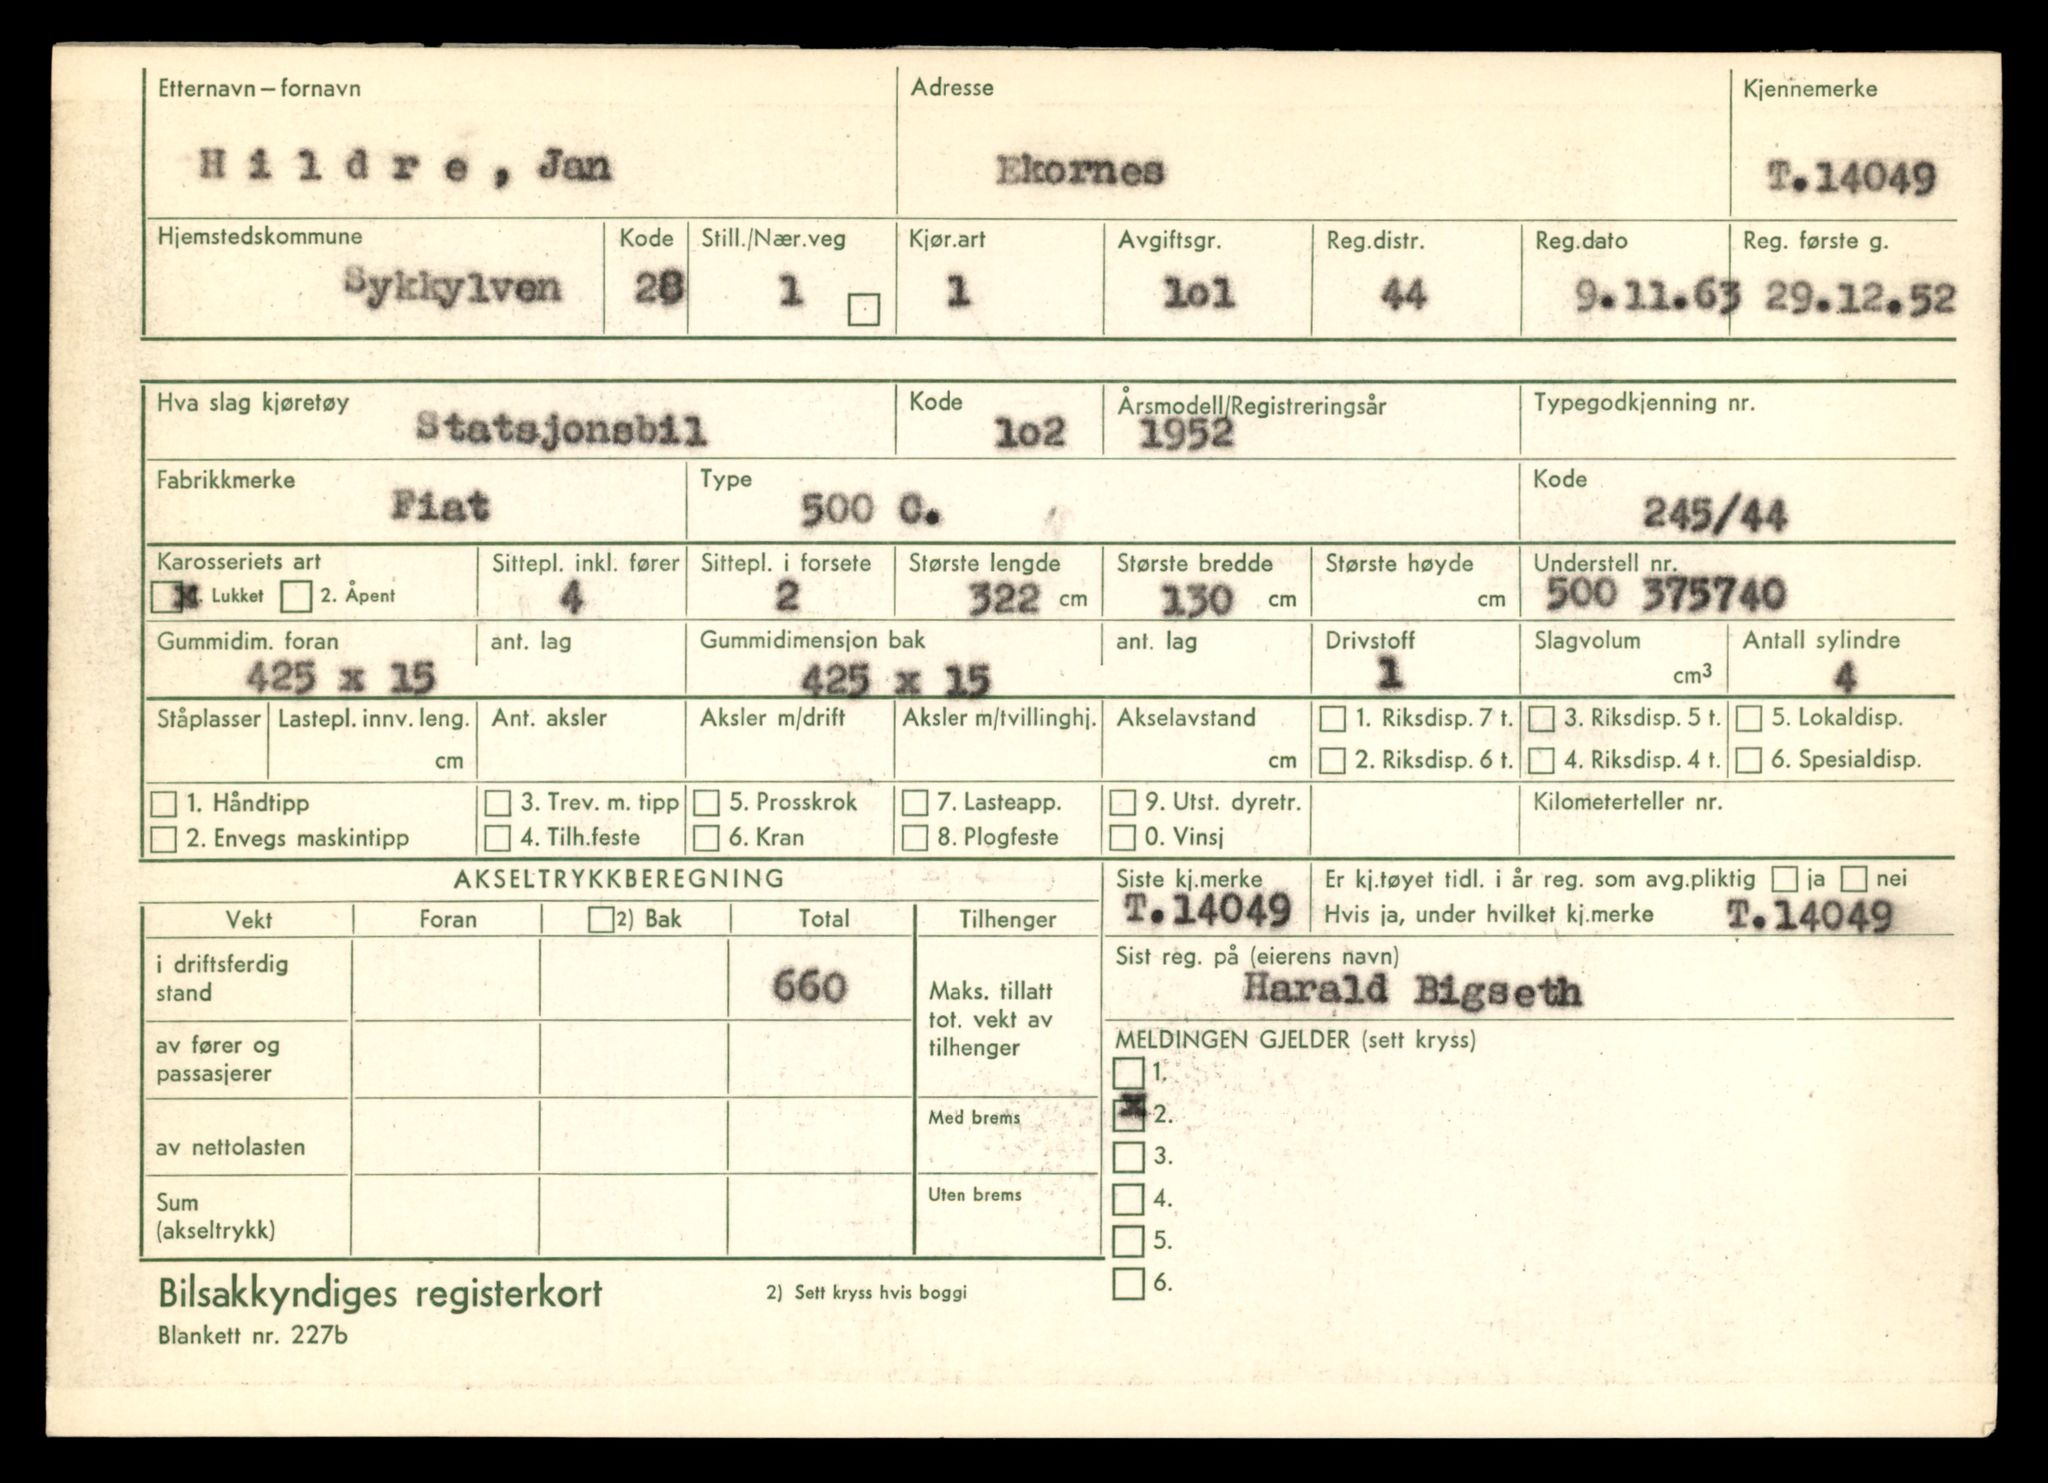 Etternavn – fornavn Adresse Kjennemerke
H i l d r e , Jan Ekornes T.14049
Hjemstedskommune Kode Still./Nær.veg Kjør.art Avgiftsgr. Reg.distr. Reg.dato Reg. første g.
Sykkylven 28 1 1 1o1 44 9.11.63 29.12.52
Hva slag kjøretøy Kode Årsmodell/Registreringsår Typegodkjenning nr.
Statsjonsbil 1o2 1952
Fabrikkmerke Type Kode
Fiat 500 C. 245/44
Karosseriets art Sittepl. inkl. fører Sittepl. i forsete Største lengde Største bredde Største høyde Understell nr.
x. Lukket 2. Åpent 4 2 322 cm 130 cm cm 500 375740
Gummidim. foran ant. lag Gummidimensjon bak ant. lag Drivstoff Slagvolum Antall sylindre
425 x 15 425 x 15 1 cm³ 4
Ståplasser Lastepl. innv. leng. Ant. aksler Aksler m/drift Aksler m/tvillinghj. Akselavstand 1. Riksdisp. 7 t. 3. Riksdisp. 5 t. 5. Lokaldisp.
cm cm 2. Riksdisp. 6 t. 4. Riksdisp. 4 t. 6. Spesialdisp.
1. Håndtipp 3. Trev. m. tipp 5. Prosskrok 7. Lasteapp. 9. Utst. dyretr. Kilometerteller nr.
2. Envegs maskintipp 4. Tilh.feste 6. Kran 8. Plogfeste 0. Vinsj
AKSELTRYKKBEREGNING Siste kj.merke Er kj.tøyet tidl. i år reg. som avg.pliktig ja nei
T.14049 Hvis ja, under hvilket kj.merke T.14049
Vekt Foran 2) Bak Total Tilhenger
Sist reg. på (eierens navn)
Harald Bigseth
i driftsferdig
stand 660
Maks. tillatt
tot. vekt av
tilhenger
av fører og
passasjerer
MELDINGEN GJELDER (sett kryss)
1.
x 2.
Med brems
av nettolasten
3.
Uten brems 4.
Sum
(akseltrykk)
5.
6.
Bilsakkyndiges registerkort 2) Sett kryss hvis boggi
Blankett nr. 227b